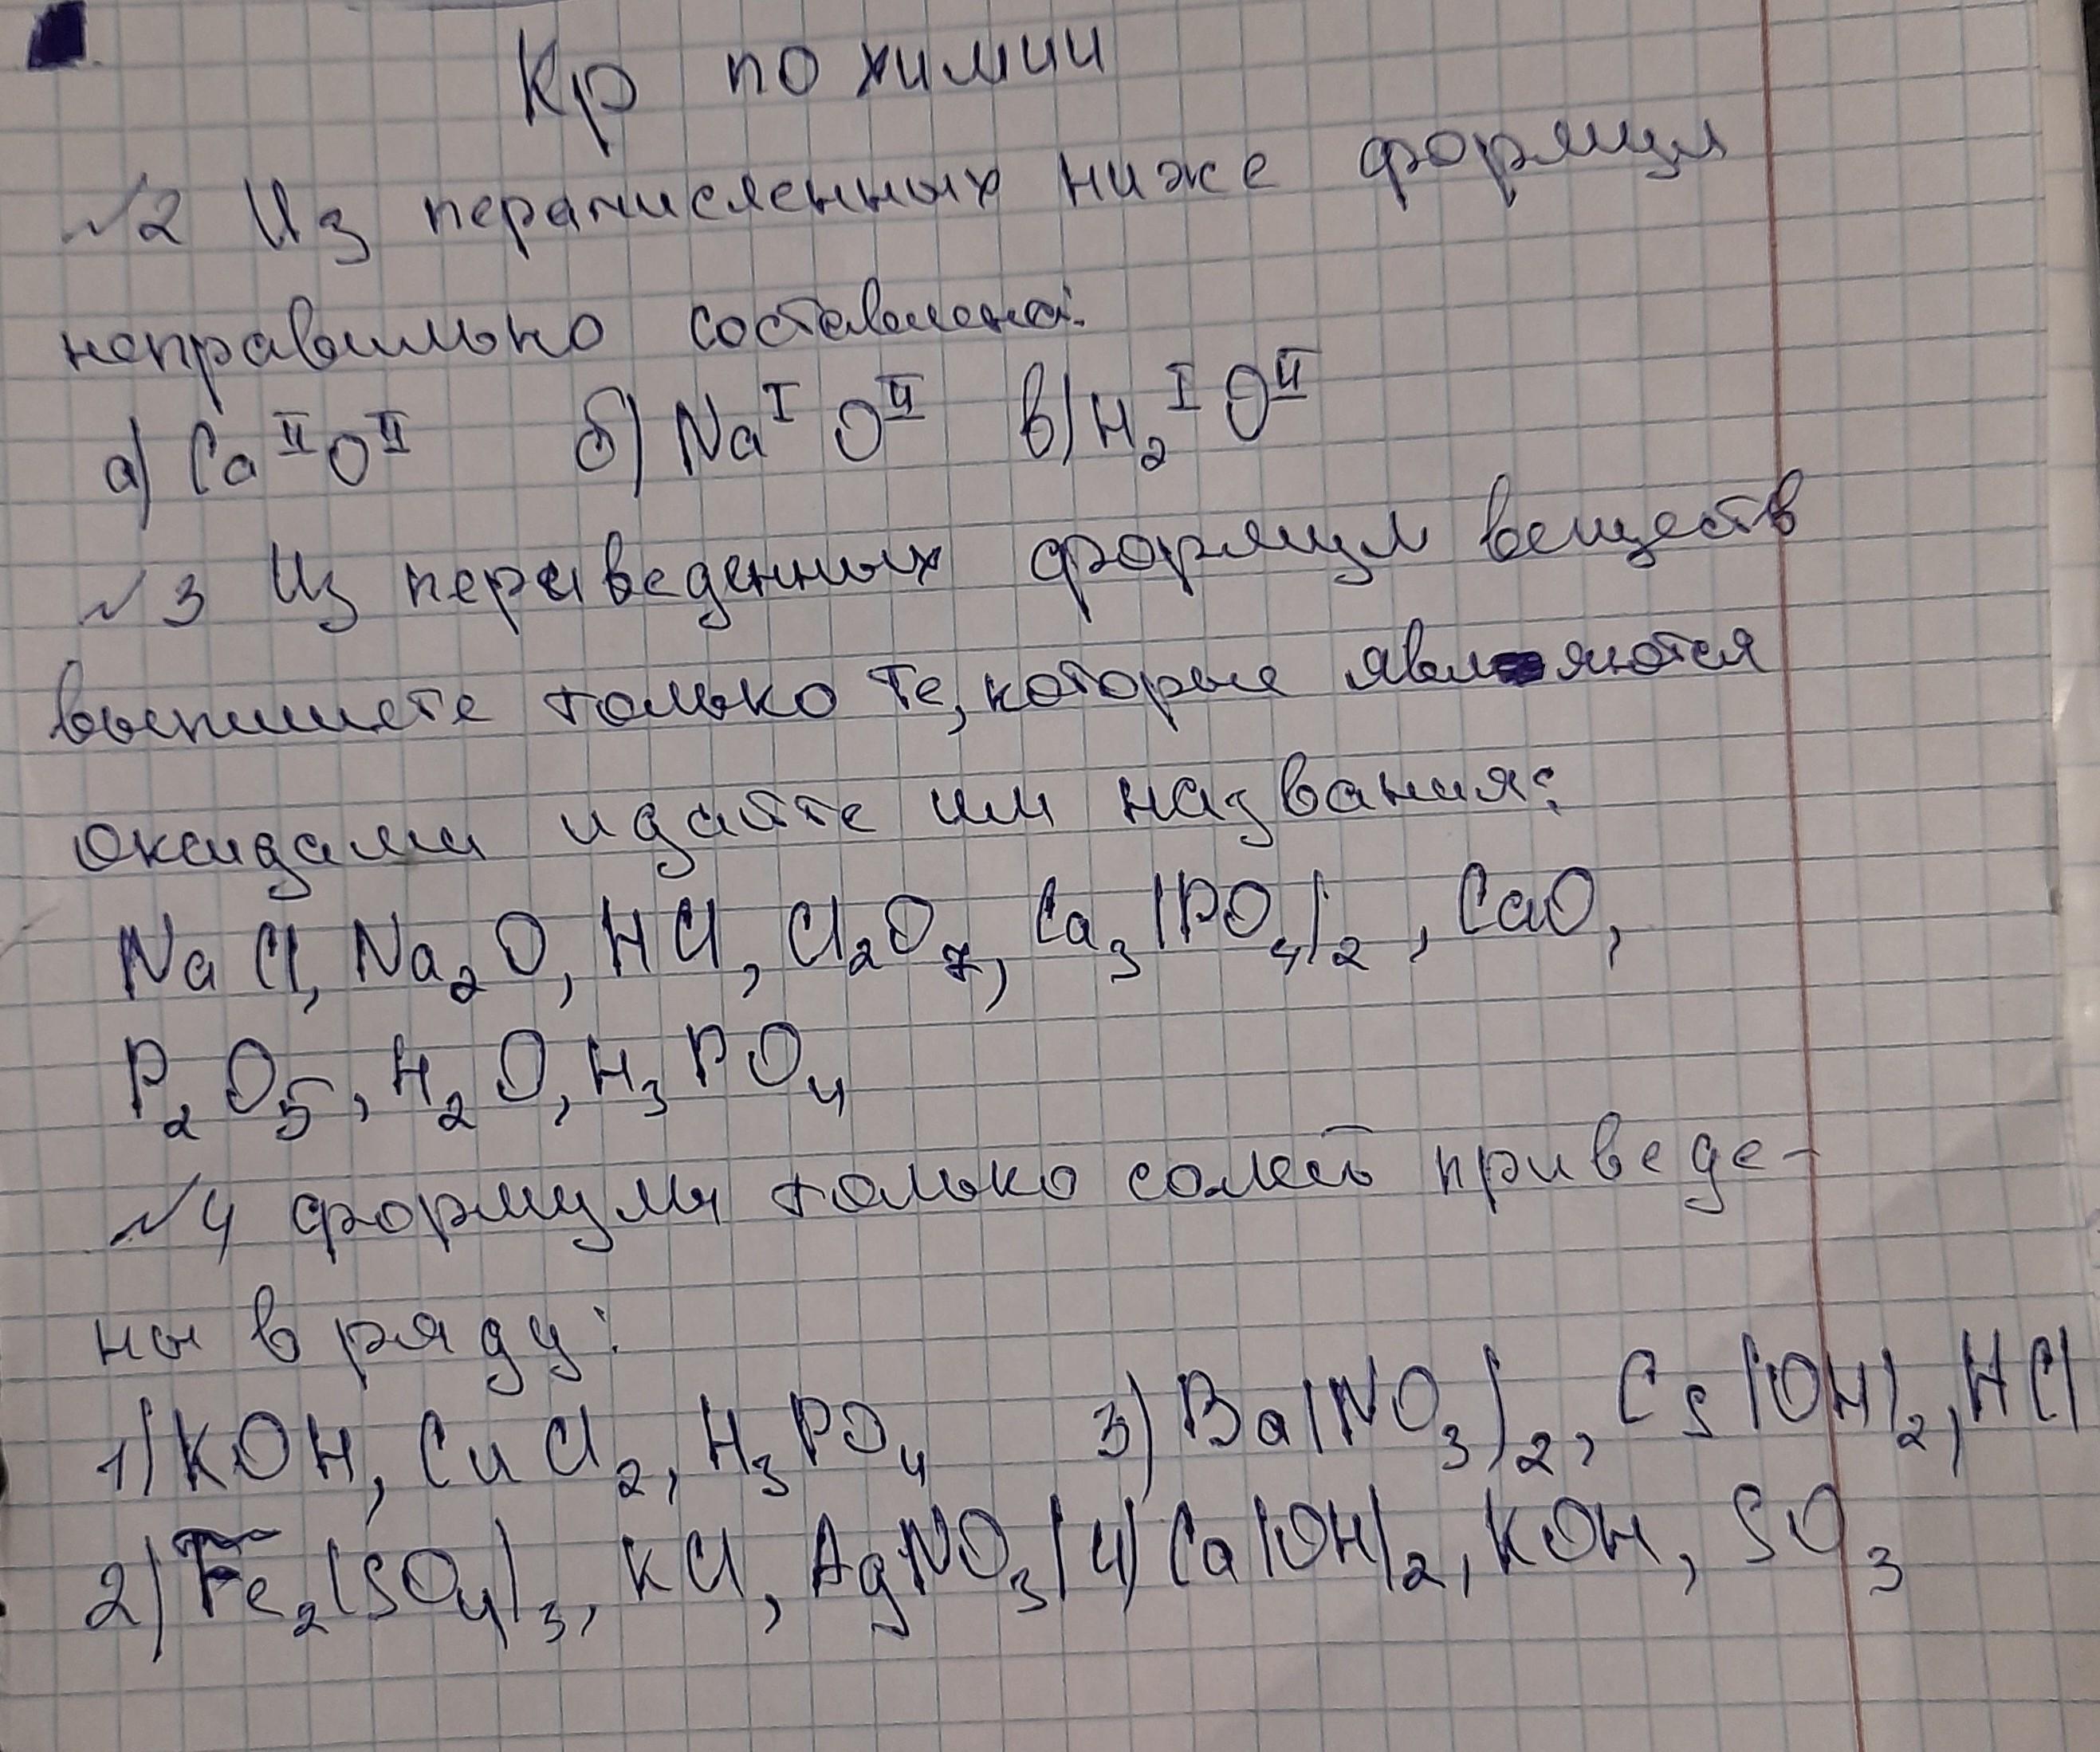 Кр по химии
№2 Из перечисленных ниже формул
неправильно составлена:
а) Ca^II O^II б) Na^I O^II в) H₂^I O^II
№3 Из переведенных формул веществ
выпишете только те, которые являются
оксидами и дайте им названия:
NaCl, Na₂O, HCl, Cl₂O₇, Ca₃(PO₄)₂, CaO,
P₂O₅, H₂O, H₃PO₄
№4 формулы только солей приведе-
ны в ряду:
1) KOH, CuCl₂, H₃PO₄ 3) Ba(NO₃)₂, Cs(OH)₂, HCl
2) Fe₂(SO₄)₃, KCl, AgNO₃ | 4) Ca(OH)₂, KOH, SO₃